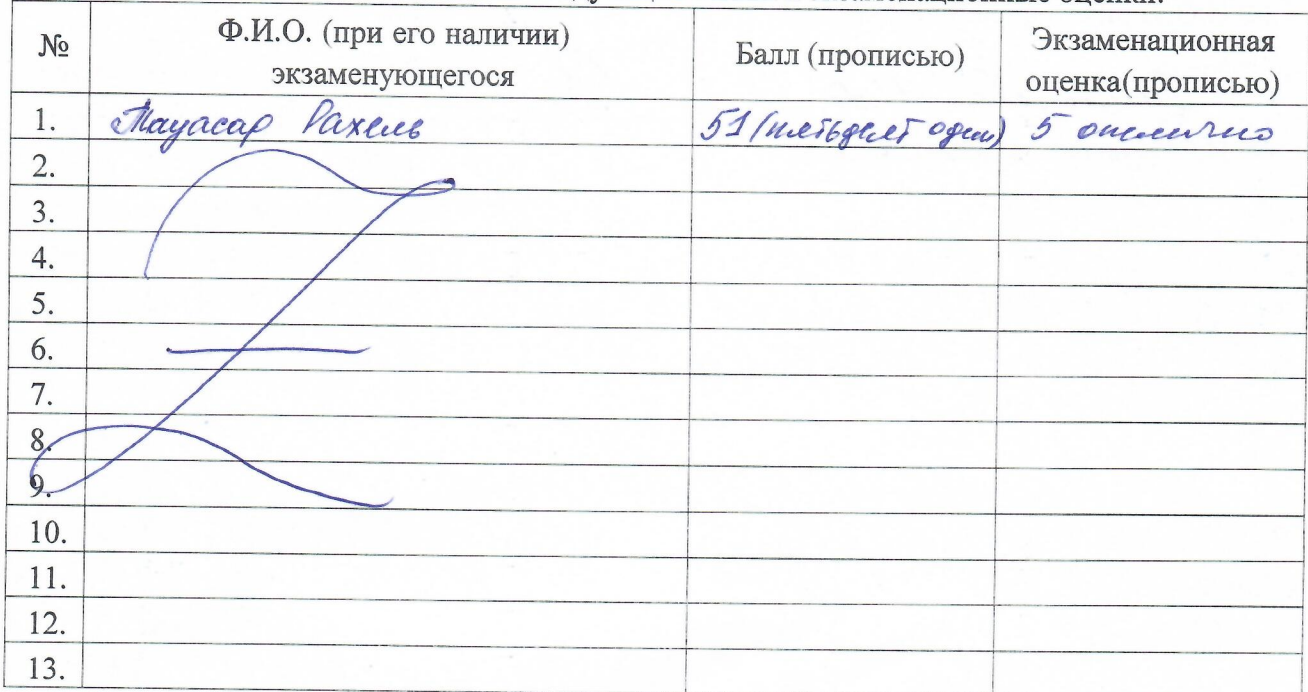 экзаменационные оценки:
№ Ф.И.О. (при его наличии) экзаменующегося Балл (прописью) Экзаменационная оценка(прописью)
1. Тауасар Рахель 51 (пятьдесят один) 5 отлично
2.
3.
4.
5.
6.
7.
8.
9.
10.
11.
12.
13.